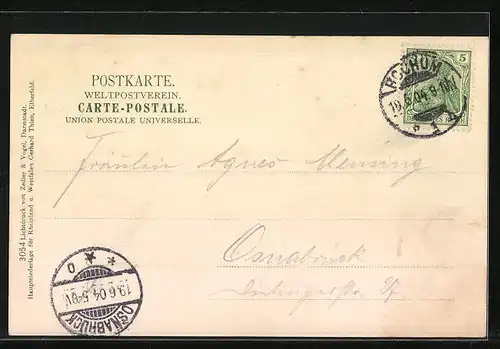 POSTKARTE.
WELTPOSTVEREIN.
CARTE-POSTALE.
UNION POSTALE UNIVERSELLE.
5
BOCHUM
19.6.04.
Fräulein Agnes Mensing
Osnabrück
3054 Lichtdruck von Zedler & Vogel, Darmstadt.
Hauptniederlage für Rheinland u. Westfalen Gerhard Thien, Elberfeld.
19.6.04.5-6N.
OSNABRÜCK